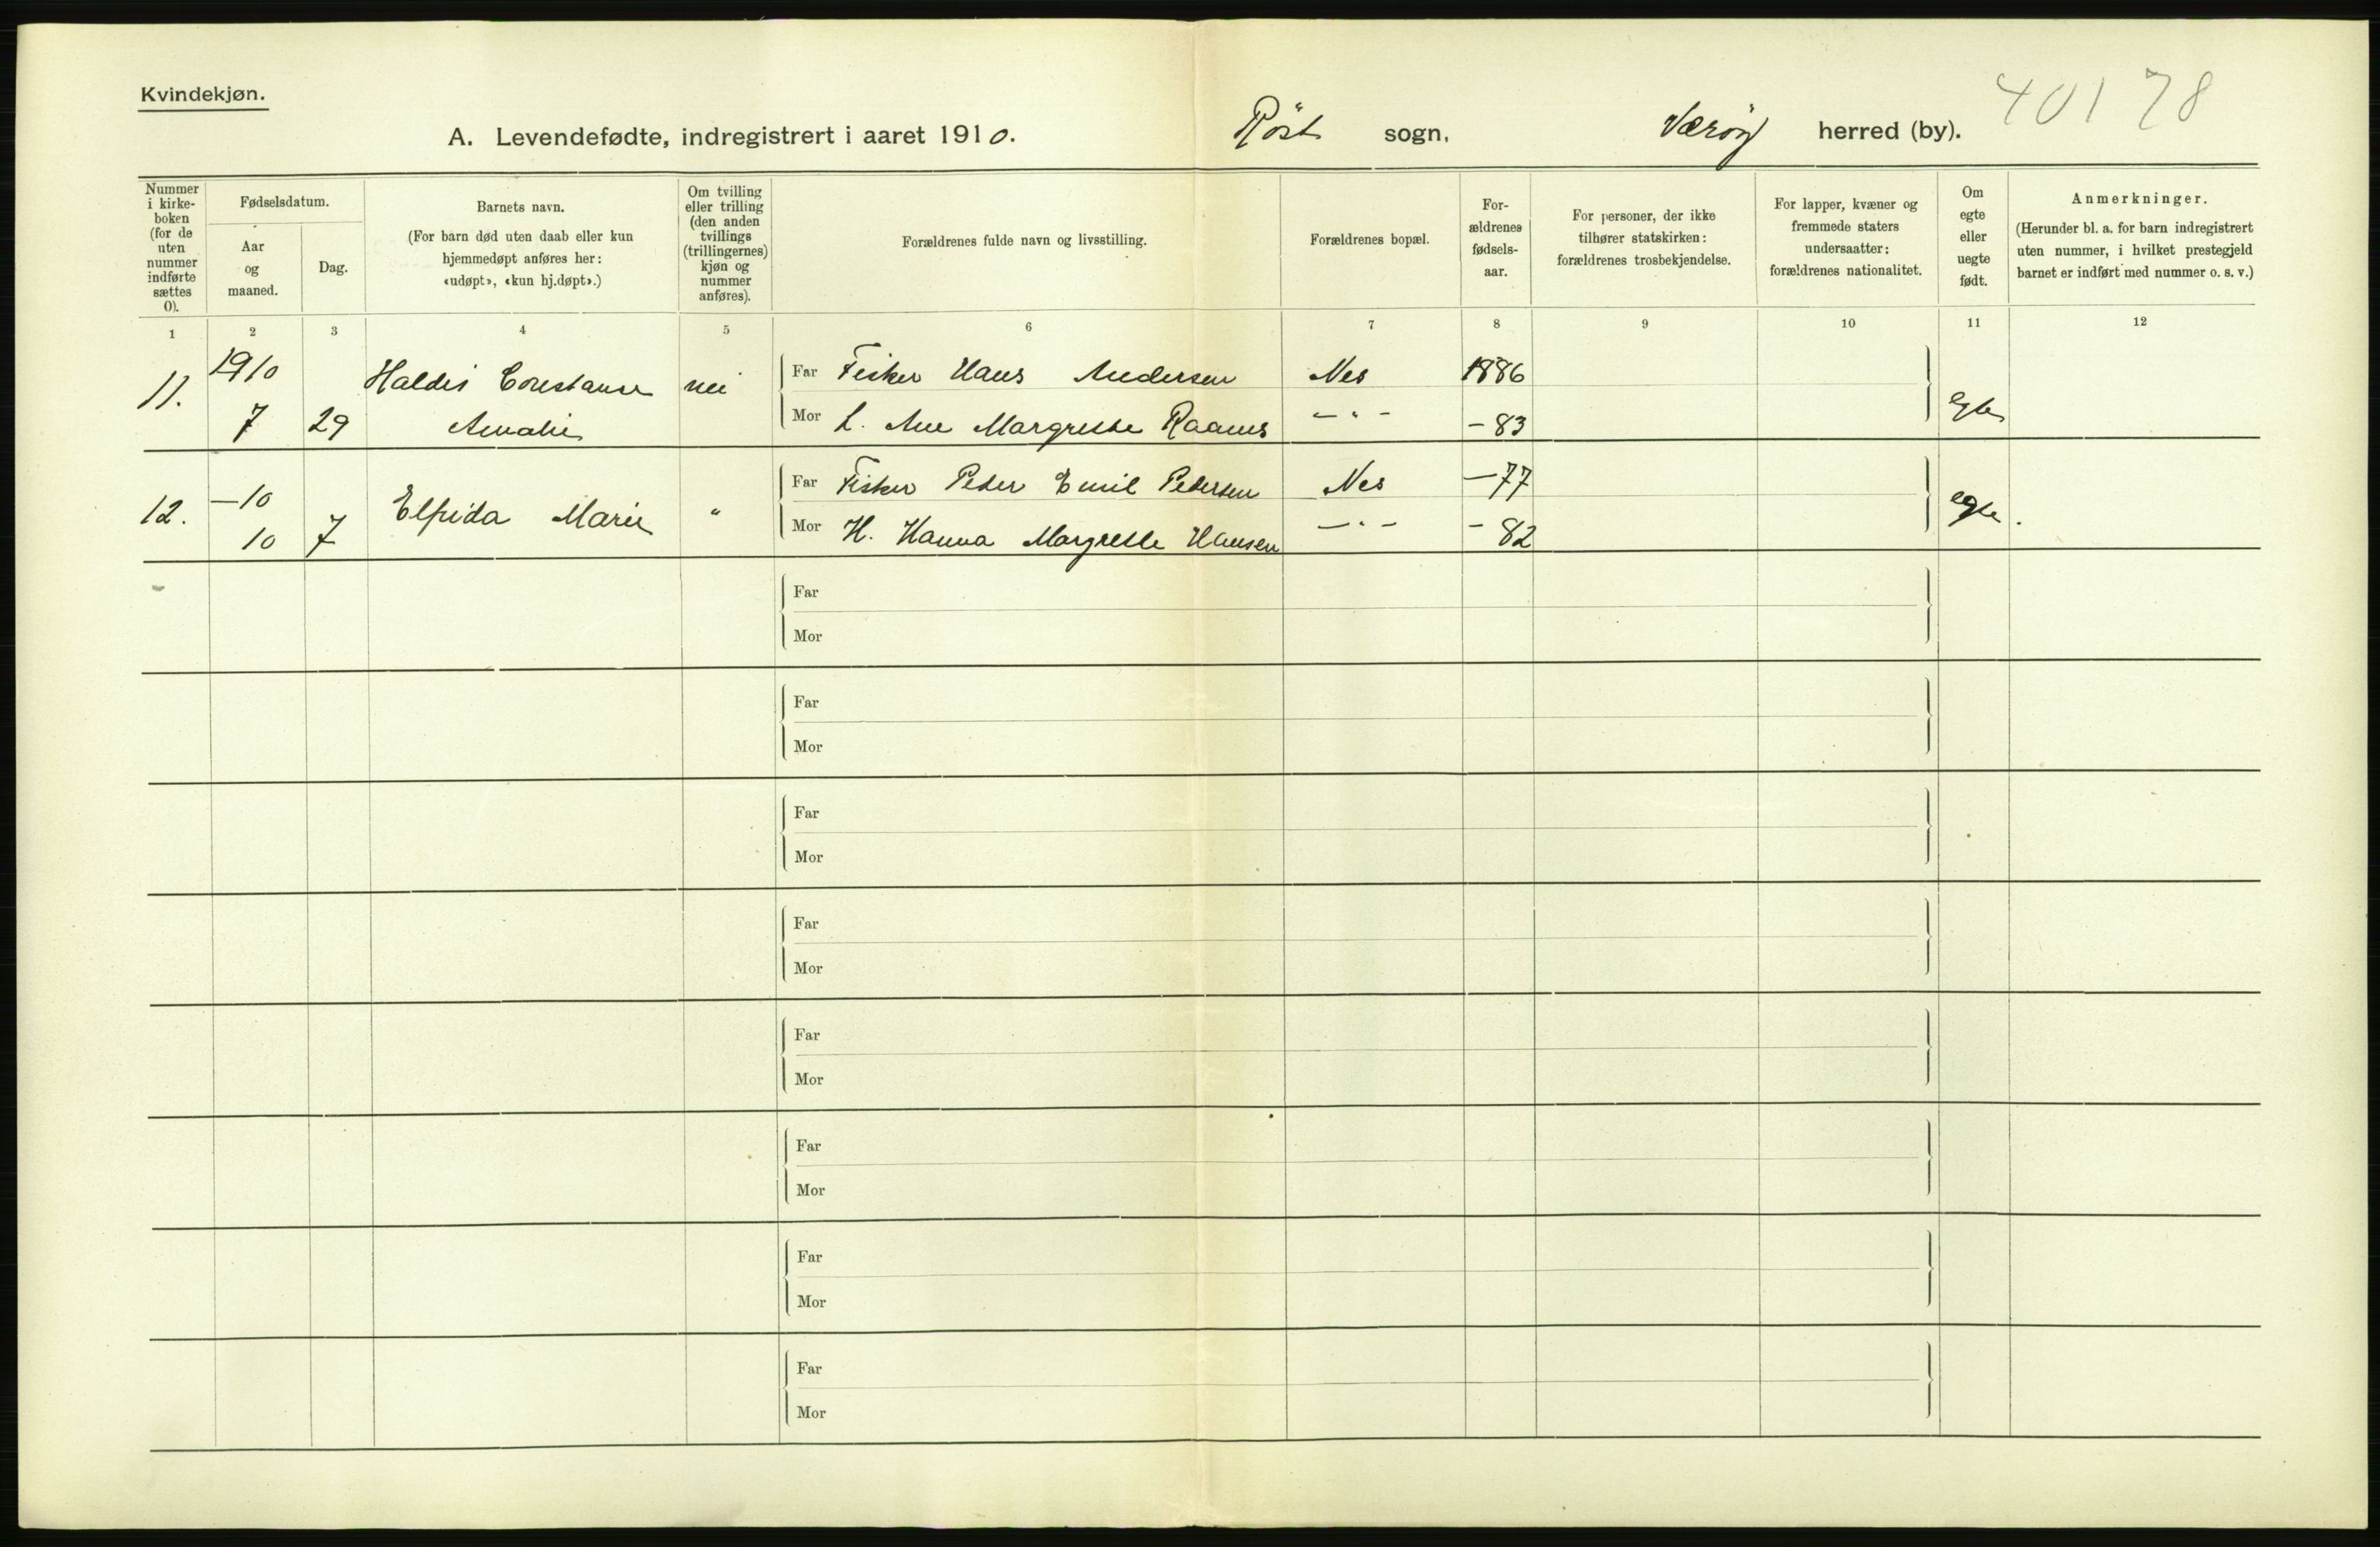 Kvindekjøn.
40178
A. Levendefødte, indregistrert i aaret 1910. Röst sogn, Værøy herred (by).
Nummer i kirkeboken (for de uten nummer indførte sættes 0).
Fødselsdatum.
Aar og maaned.
Dag.
Barnets navn.
(For barn død uten daab eller kun
hjemmedøpt anføres her:
«udøpt», «kun hj.døpt».)
Om tvilling eller trilling (den anden tvillings (trillingernes) kjøn og nummer anføres).
Forældrenes fulde navn og livsstilling.
Forældrenes bopæl.
Forældrenes fødselsaar.
For personer, der ikke
tilhører statskirken:
forældrenes trosbekjendelse.
For lapper, kvæner og
fremmede staters
undersaatter:
forældrenes nationalitet.
Om egte eller uegte født.
Anmerkninger.
(Herunder bl. a. for barn indregistrert
uten nummer, i hvilket prestegjeld
barnet er indført med nummer o. s. v.)
1 2 3 4 5 6 7 8 9 10 11 12
11. 1910 Haldis Constanse nei Far Fisker Hans Andersen Nes 1886
7 29 Amalie Mor L. Ane Margrethe Raanes – " – – 83 egte
12. –10 Elfrida Marie " Far Fisker Peder Emil Pedersen Nes –77
10 7 Mor H. Hanna Margrethe Hansen – " – – 82 egte.
Far
Mor
Far
Mor
Far
Mor
Far
Mor
Far
Mor
Far
Mor
Far
Mor
Far
Mor